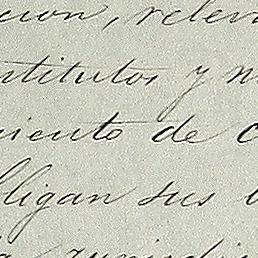 cion, relev
stitutos y m
miento de c
lligan sus
jurisdi